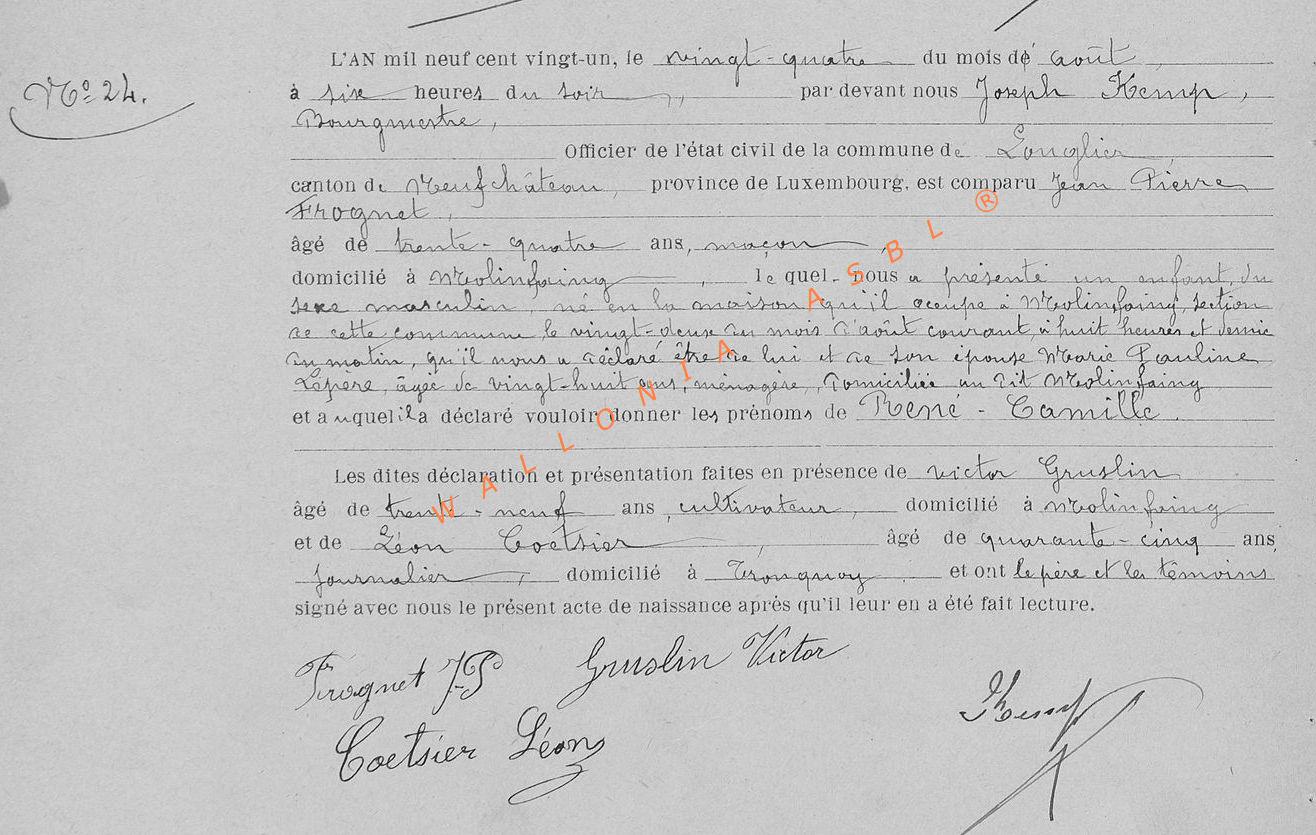 L'AN mil neuf cent vingt-un, le vingt-quatre du mois de août,
N° 24.
à six heures du soir, par devant nous Joseph Kemp,
Bourgmestre,
Officier de l'état civil de la commune de Longlier,
canton de Neufchâteau, province de Luxembourg, est comparu Jean Pierre
Frognet,
âgé de trente-quatre ans, maçon,
domicilié à Molinfaing, le quel nous a présenté un enfant du
sexe masculin, né en la maison qu'il occupe à Molinfaing, section
de cette commune, le vingt-deux du mois d'août courant, à huit heures et demie
du matin, qu'il nous a déclaré être de lui et de son épouse Marie Pauline
Lepère, âgée de vingt-huit ans, ménagère, domiciliée au dit Molinfaing
et auquel il a déclaré vouloir donner les prénoms de René - Camille.
Les dites déclaration et présentation faites en présence de Victor Gruslin
âgé de trente-neuf ans, cultivateur, domicilié à Molinfaing
et de Léon Coetsier, âgé de quarante-cinq ans,
journalier, domicilié à Tronquoy. et ont le père et les témoins
signé avec nous le présent acte de naissance après qu'il leur en a été fait lecture.
Frognet J-P Gruslin Victor
Kemp
Coetsier Léon
WALLONIA ASBL ®